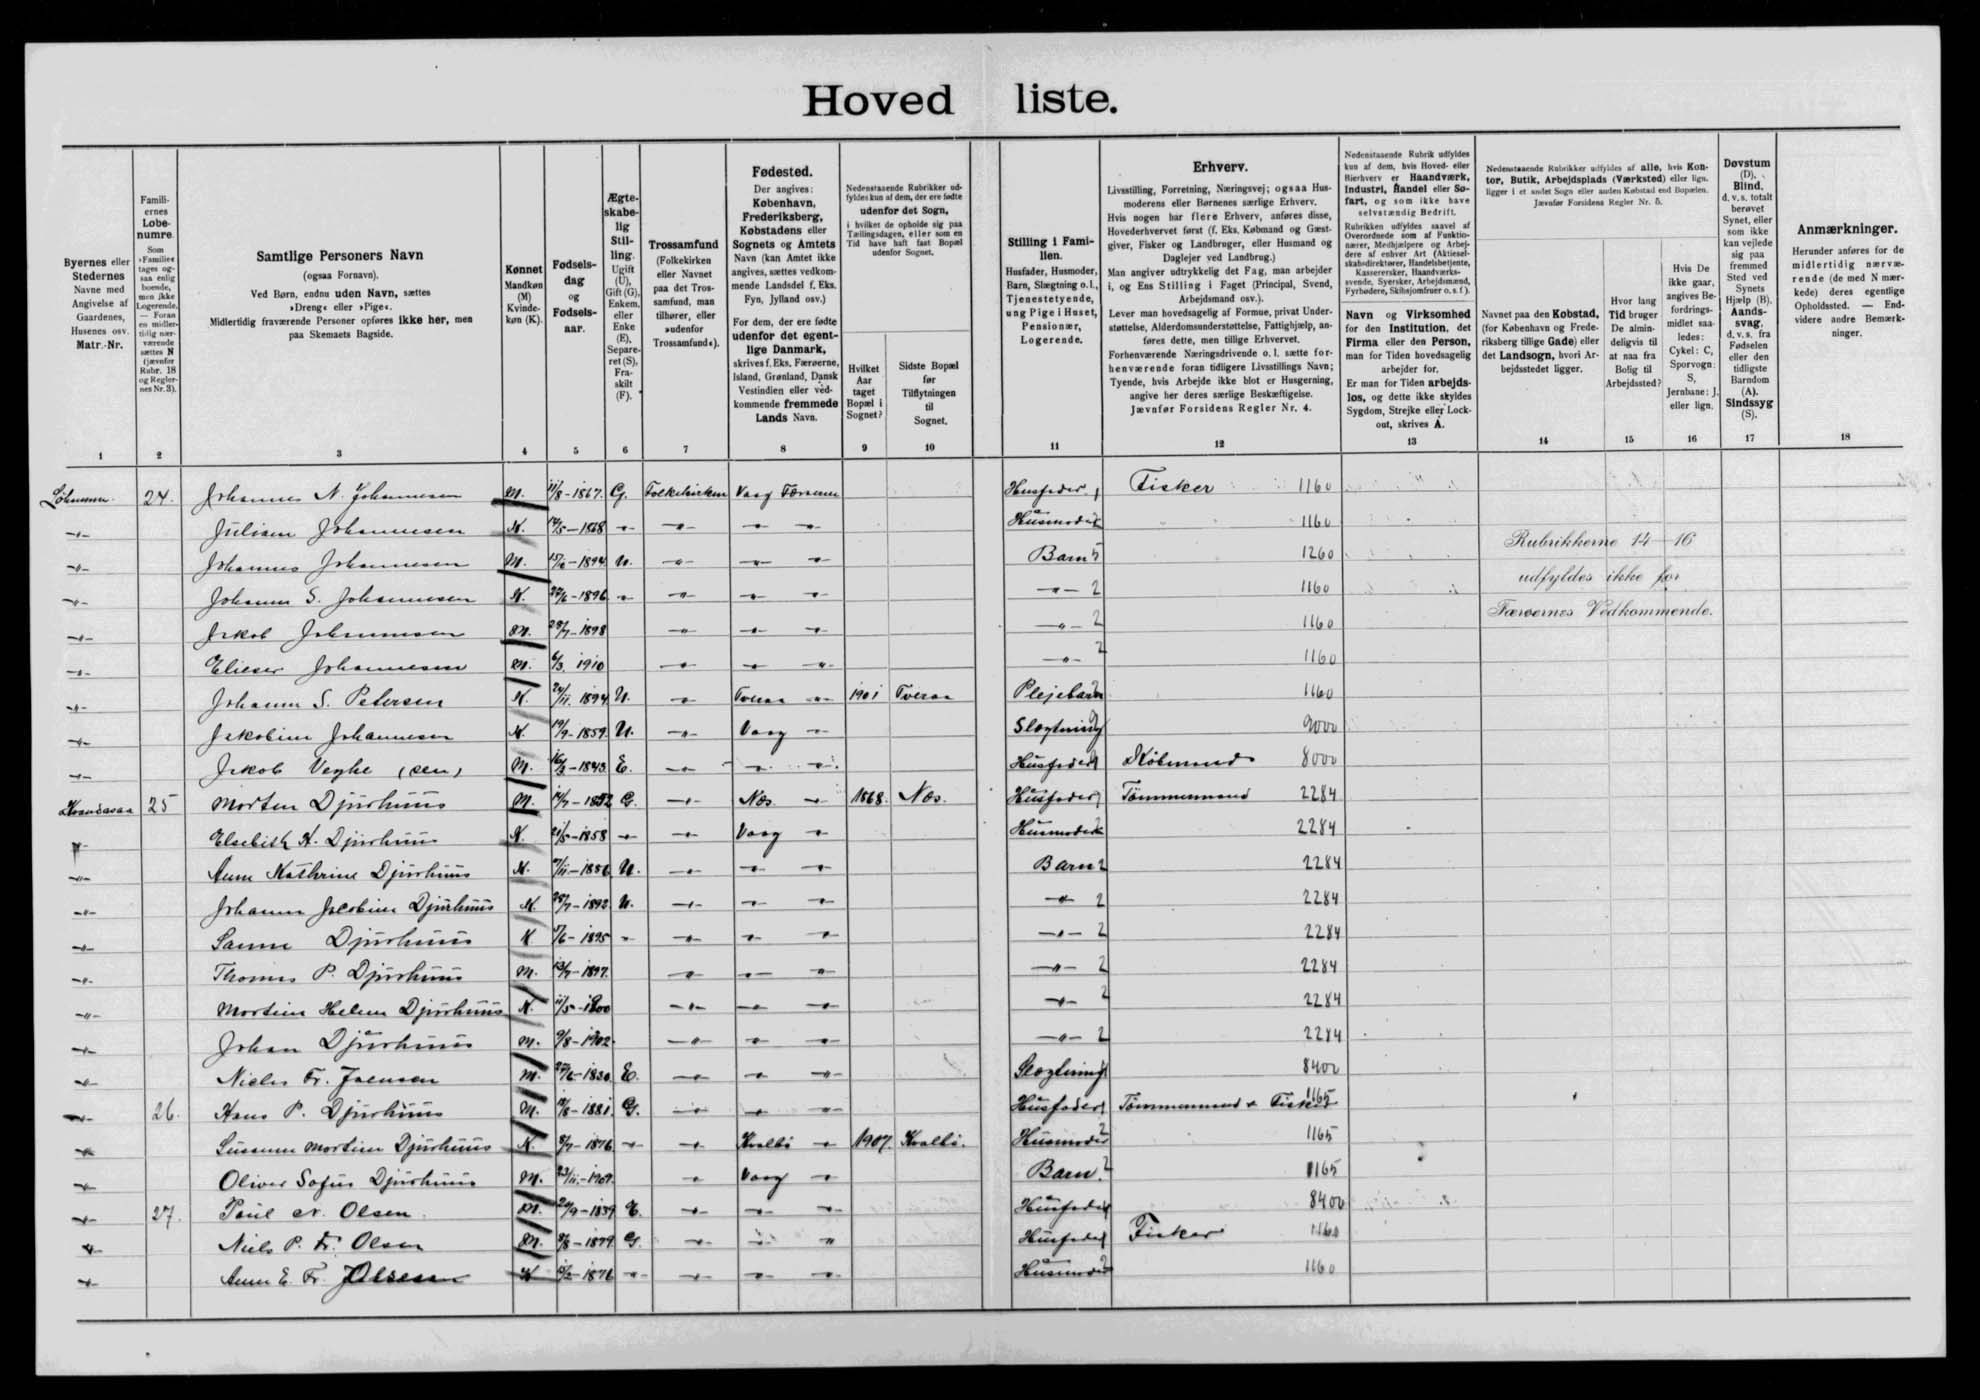 Hoved liste.
Byernes eller Stedernes Navne med Angivelse af Gaardenes, Husenes osv. Matr.-Nr.
Famili-ernes Løbe-numre. Som »Familie« tages og-saa enlig boende, men ikke Logerende. — Foran en midler-tidig nær-værende sættes N (jævnfør Rubr. 18 og Regler-nes Nr. 3).
Samtlige Personers Navn
(ogsaa Fornavn).
Ved Børn, endnu uden Navn, sættes
»Dreng« eller »Pige«.
Midlertidig fraværende Personer opføres ikke her, men
paa Skemaets Bagside.
Kønnet Mandkøn (M) Kvinde-køn (K).
Fødsels-dag og Fødsels-aar.
Ægte-skabe-lig Stil-ling. Ugift (U), Gift (G), Enkem. eller Enke (E), Separe-ret (S), Fra-skilt (F).
Trossamfund (Folkekirken eller Navnet paa det Tros-samfund, man tilhører, eller »udenfor Trossamfund«).
Fødested.
Der angives: København, Frederiksberg, Købstadens eller Sognets og Amtets Navn (kan Amtet ikke angives, sættes vedkom-mende Landsdel f. Eks. Fyn, Jylland osv.)
For dem, der ere fødte udenfor det egent-lige Danmark, skrives f. Eks. Færøerne, Island, Grønland, Dansk Vestindien eller ved-kommende fremmede Lands Navn.
Nedenstaaende Rubrikker ud-fyldes kun af dem, der ere fødte udenfor det Sogn, i hvilket de opholde sig paa Tællingsdagen, eller som en Tid have haft fast Bopæl udenfor Sognet.
Hvilket Aar taget Bopæl i Sognet?
Sidste Bopæl før Tilflytningen til Sognet.
Stilling i Fami-lien. Husfader, Husmoder, Barn, Slægtning o.l., Tjenestetyende, ung Pige i Huset, Pensionær, Logerende.
Erhverv.
Livsstilling, Forretning, Næringsvej; ogsaa Hus-moderens eller Børnenes særlige Erhverv.
Hvis nogen har flere Erhverv, anføres disse, Hovederhvervet først (f. Eks. Købmand og Gæst-giver, Fisker og Landbruger, eller Husmand og Daglejer ved Landbrug.)
Man angiver udtrykkelig det Fag, man arbejder i, og Ens Stilling i Faget (Principal, Svend, Arbejdsmand osv.).
Lever man hovedsagelig af Formue, privat Under-støttelse, Alderdomsunderstøttelse, Fattighjælp, an-føres dette, men tillige Erhvervet.
Forhenværende Næringsdrivende o. l. sætte for-henværende foran tidligere Livsstillings Navn; Tyende, hvis Arbejde ikke blot er Husgerning, angive her deres særlige Beskæftigelse.
Jævnfør Forsidens Regler Nr. 4.
Nedenstaaende Rubrik udfyldes kun af dem, hvis Hoved- eller Bierhverv er Haandværk, Industri, Handel eller Sø-fart, og som ikke have selvstændig Bedrift.
Rubrikken udfyldes saavel af Overordnede som af Funktio-nærer, Medhjælpere og Arbej-dere af enhver Art (Aktiesel-skabsdirektører, Handelsbetjente, Kasserersker, Haandværks-svende, Syersker, Arbejdsmænd, Fyrbødere, Skibsjomfruer o. s. f.).
Navn og Virksomhed for den Institution, det Firma eller den Person, man for Tiden hovedsagelig arbejder for.
Er man for Tiden arbejds-løs, og dette ikke skyldes Sygdom, Strejke eller Lock-out, skrives A.
Nedenstaaende Rubrikker udfyldes af alle, hvis Kon-tor, Butik, Arbejdsplads (Værksted) eller lign. ligger i et andet Sogn eller anden Købstad end Bopælen. Jævnfør Forsidens Regler Nr. 5.
Navnet paa den Købstad, (for København og Frede-riksberg tillige Gade) eller det Landsogn, hvori Ar-bejdsstedet ligger.
Hvor lang Tid bruger De almin-deligvis til at naa fra Bolig til Arbejdssted?
Hvis De ikke gaar, angives Be-fordrings-midlet saa-ledes: Cykel: C, Sporvogn: S, Jernbane: J, eller lign.
Døvstum (D), Blind, d. v. s. totalt berøvet Synet, eller som ikke kan vejlede sig paa fremmed Sted ved Synets Hjælp (B). Aands-svag, d. v. s. fra Fødselen eller den tidligste Barndom (A). Sindssyg (S).
Anmærkninger.
Herunder anføres for de midlertidig nærvæ-rende (de med N mær-kede) deres egentlige Opholdssted. — End-videre andre Bemærk-ninger.
1 2 3 4 5 6 7 8 9 10 11 12 13 14 15 16 17 18
24. Johannes N. Johannesen M. 11/8-1867. G. Folkekirken Vaag Færøerne Husfader 1 Fisker 1160
-"- Juliane Johannesen K. -1868 -"- -"- -"- -"- Husmoder 1160
-"- Johannes Johannesen M. -1894 U. -"- -"- -"- Barn 5 1260
-"- Johanne S. Johannesen K. -1896 -"- -"- -"- -"- -"- 2 1160
-"- Jakob Johannesen M. -1898 -"- -"- -"- -"- 2 1160
-"- Elieser Johannesen M. 6/3 1910 -"- -"- -"- -"- 2 1160
-"- Johanne S. Petersen K. 1894 U. -"- Tveraa -"- 1901 Tveraa Plejebarn 1160
-"- Jakobine Johannesen K. 19/9-1859. U. -"- Vaag -"- Slægtning 9000
-"- Jakob Veyhe (sen) M. 16/3-1843 E. -"- -"- -"- Husfader Købmand 8000
25 Morten Djurhuus M. -1852 G. -"- Næs -"- 1868. Næs. Husfader Tømmermand 2284
-"- Elsebith K. Djurhuus K. 21/5-1858 -"- -"- Vaag -"- Husmoder 2284
-"- Anne Kathrine Djurhuus K. U. -"- -"- -"- Barn 2 2284
-"- Johanne Jacobine Djurhuus K. 28/7-1892 U. -"- -"- -"- -"- 2 2284
-"- Sanne Djurhuus K. -1895 -"- -"- -"- -"- -"- 2 2284
-"- Thomas P. Djurhuus M. 13/7-1897. -"- -"- -"- -"- 2 2284
-"- Mortine Helene Djurhuus K. 11/5-1900 -"- -"- -"- -"- 2 2284
-"- Johan Djurhuus M. 9/8-1902. -"- -"- -"- -"- 2 2284
-"- Niels Fr. Joensen M. -1830 E. -"- -"- -"- Slægtning 8400
-"- 26. Hans P. Djurhuus M. -1881 G. -"- -"- -"- Husfader Tømmermand & Fisker 1165
-"- Susanne Mortine Djurhuus K. -1876 -"- -"- Kvalbø -"- 1907. Kvalbø. Husmoder 2 1165
-"- Oliver Sofus Djurhuus M. 23/11-1909. -"- Vaag -"- Barn 2 1165
-"- 27. Poul N. Olsen M. -1839 E. -"- -"- -"- Husfader 8400
-"- Niels P. Fr. Olsen M. -1879 G. -"- -"- " Husfader Fisker 1160
-"- Anne E. Fr. Olsen K -1876 -"- -"- -"- -"- Husmoder 1160
Rubrikkerne 14—16
udfyldes ikke for
Færøernes Vedkommende.